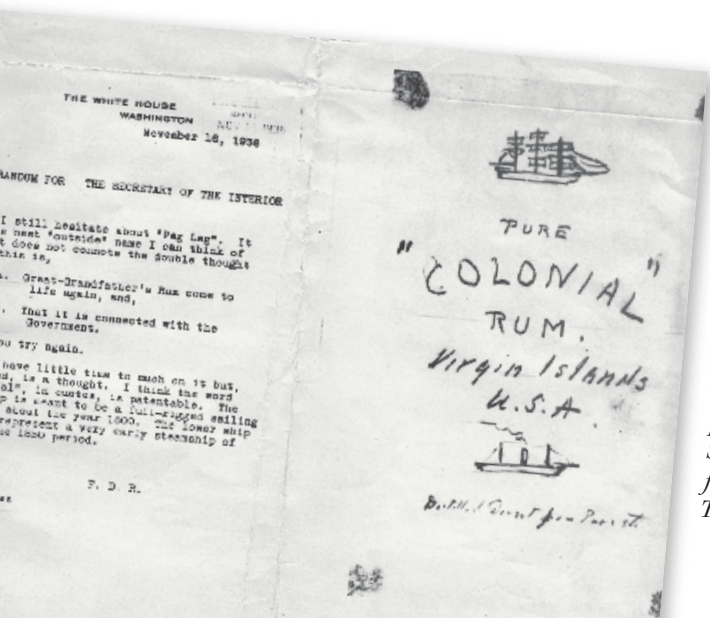 THE WHITE HOUSE
WASHINGTON
November 16, 1936
RANDUM FOR THE SECRETARY OF THE INTERIOR
I still hesitate about "Pag Lag". It
s best "outside" name I can think of
t does not connote the double thought
this is,
Great-Grandfather's Rum come to
life again, and,
That it is connected with the
Government.
ou try again.
have little time to much on it but,
d, is a thought. I think the word
al", in quotes, is patentable. The
p is meant to be a full-rigged sailing
about the year 1800. The lower ship
represent a very early steamship of
he 1850 period.
F. D. R.
PURE
"COLONIAL"
RUM.
Virgin Islands
U.S.A.
Distilled Direct from